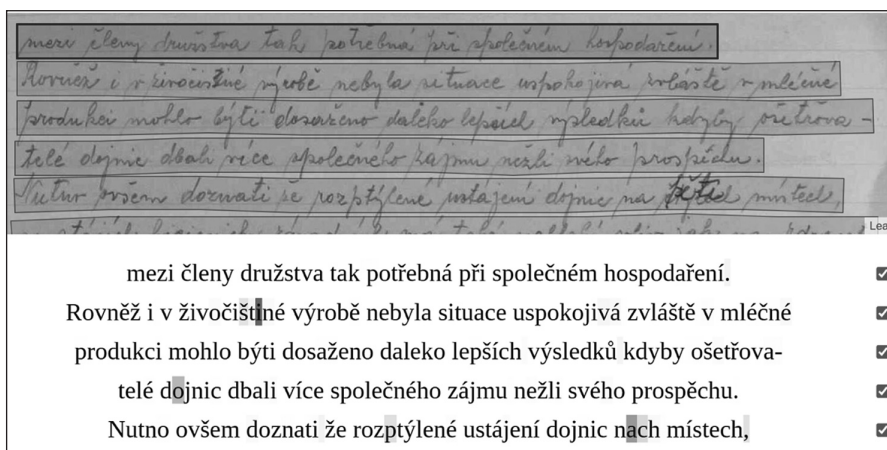 mezi členy družstva tak potřebná při společném hospodaření.
Rovněž i v živočišné výrobě nebyla situace uspokojivá zvláště v mléčné
produkci mohlo býti dosaženo daleko lepších výsledků kdyby ošetřova-
telé dojnic dbali více společného zájmu nežli svého prospěchu.
Nutno ovšem doznati že rozptýlené ustájení dojnic na místech,
Lea
mezi členy družstva tak potřebná při společném hospodaření.
Rovněž i v živočištiné výrobě nebyla situace uspokojivá zvláště v mléčné
produkci mohlo býti dosaženo daleko lepších výsledků kdyby ošetřova-
telé dojnic dbali více společného zájmu nežli svého prospěchu.
Nutno ovšem doznati že rozptýlené ustájení dojnic nach místech,